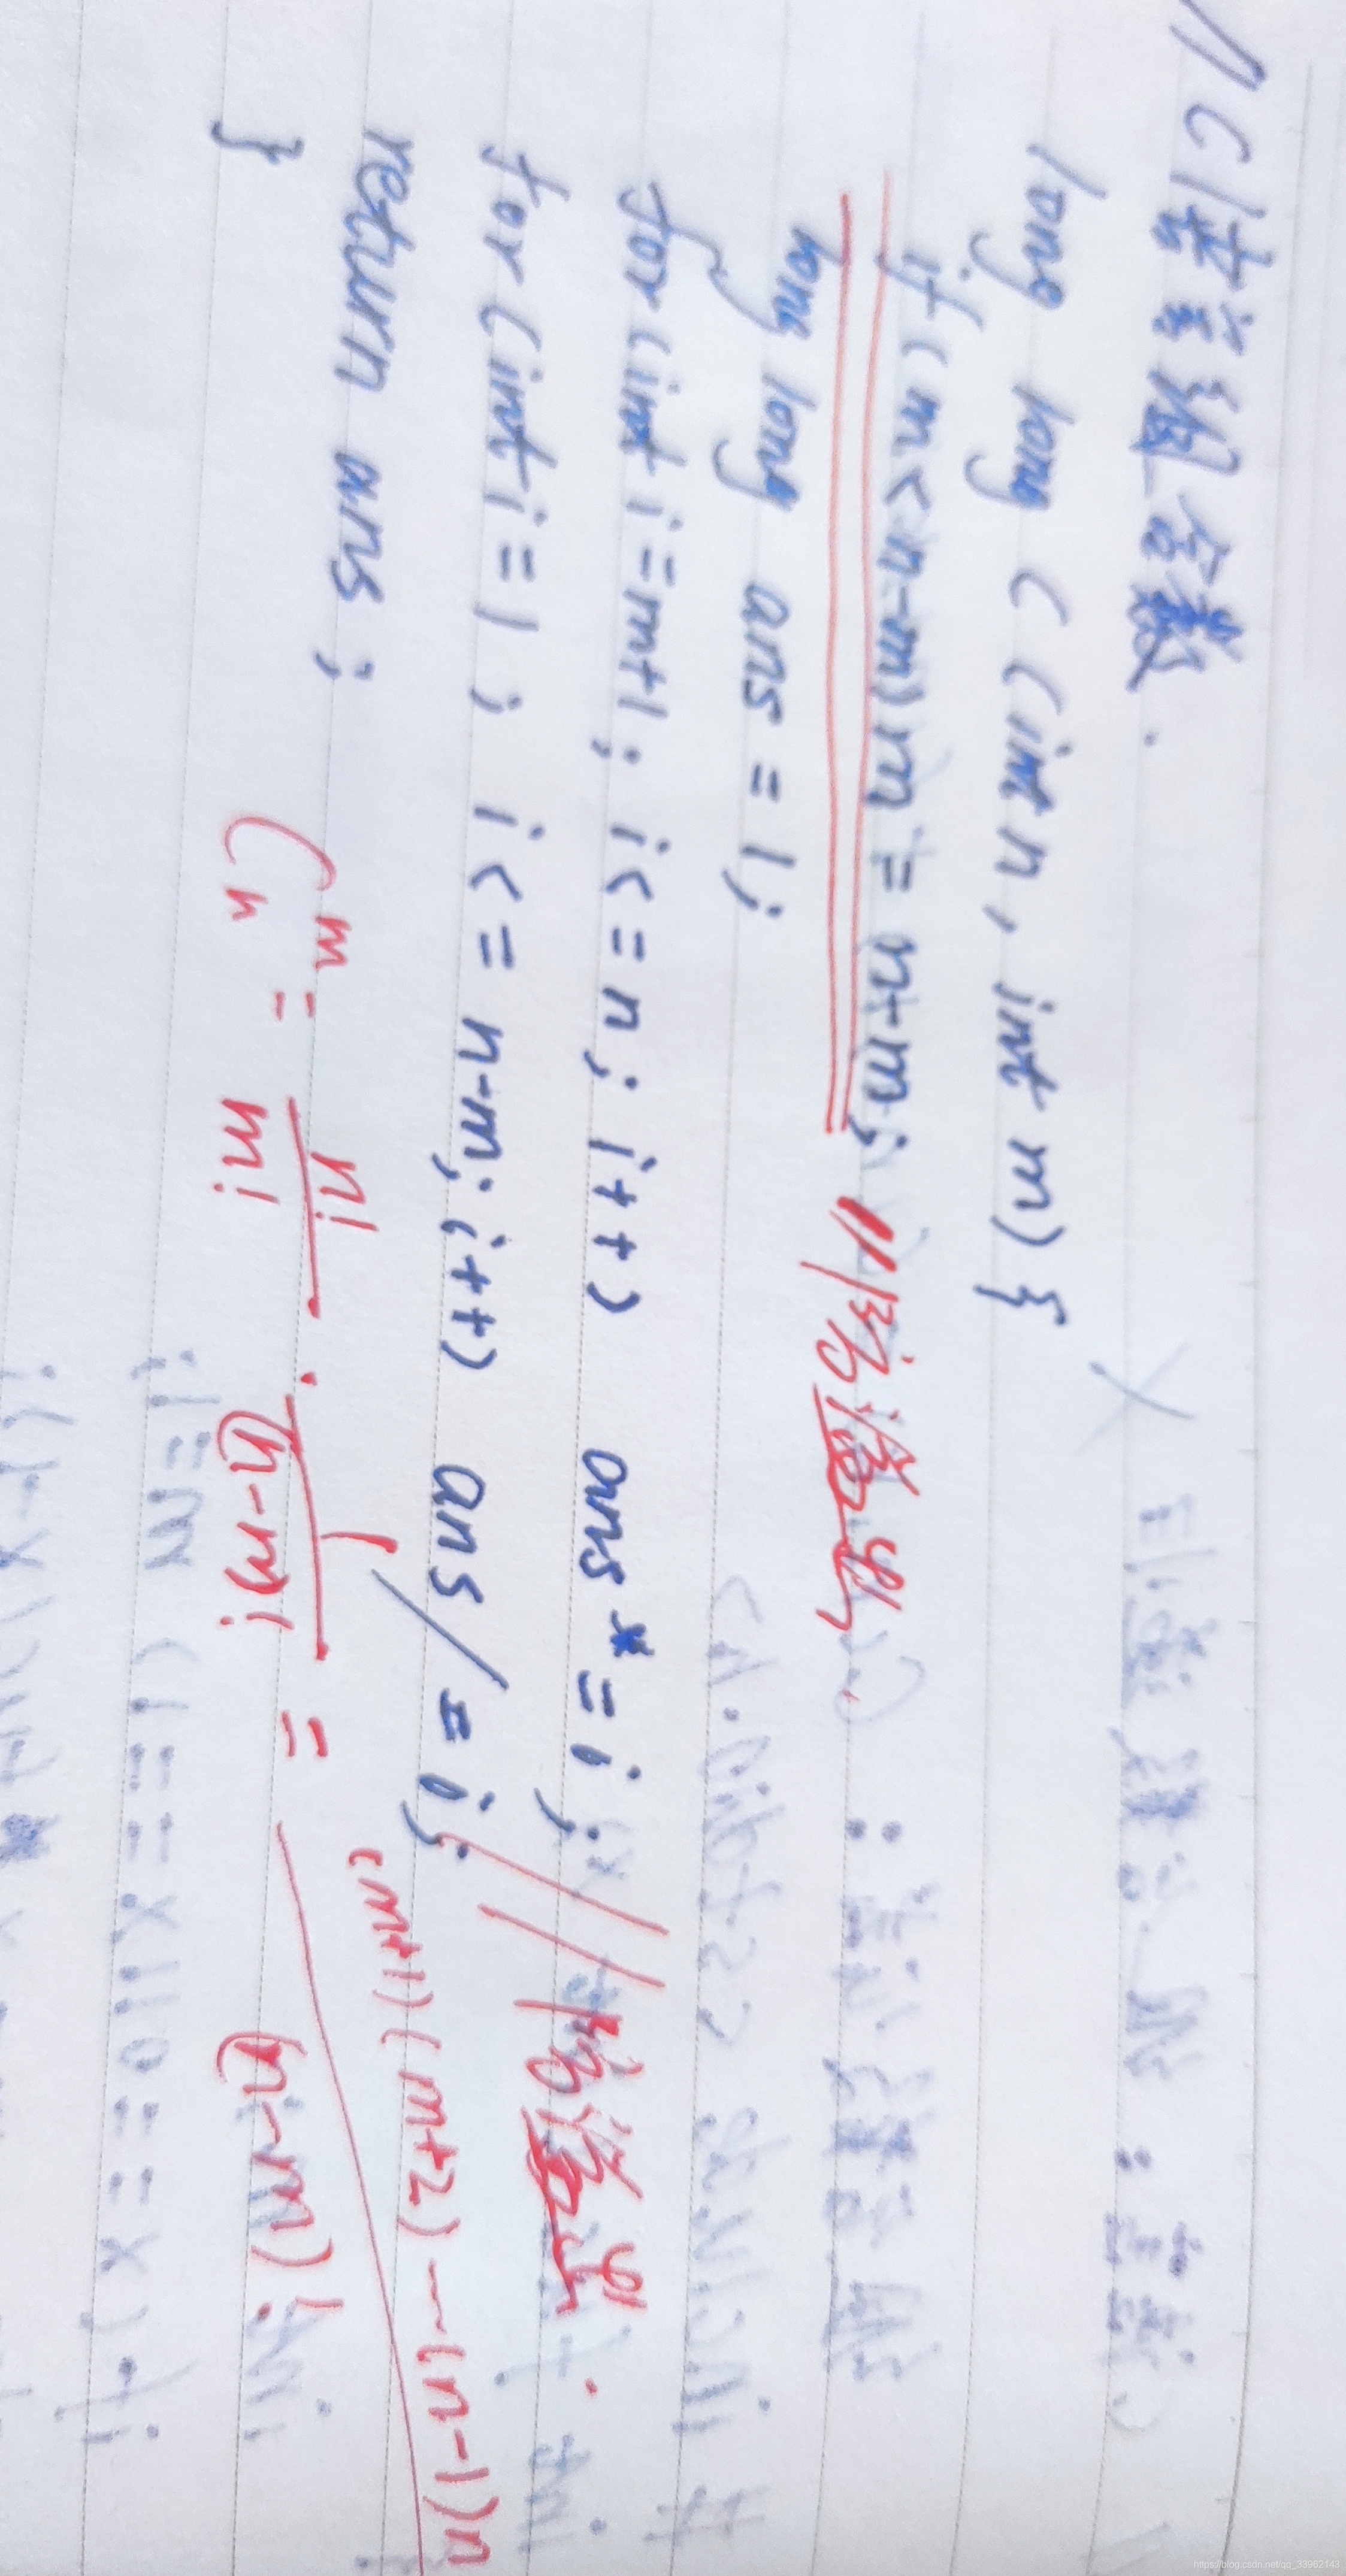 C语言组合数.
long long C(int n, int m) {
if (m < n-m) m = n-m; //防溢出
long long ans = 1;
for (int i=m+1; i<=n; i++) ans *= i; //防溢出.
for (int i=1; i<=n-m; i++) ans /= i;
return ans;
}
C_n^m = n!/m! · 1/(n-m)! = (m+1)(m+2)--(n-1)n/(n-m)!
https://blog.csdn.net/qq_33962143